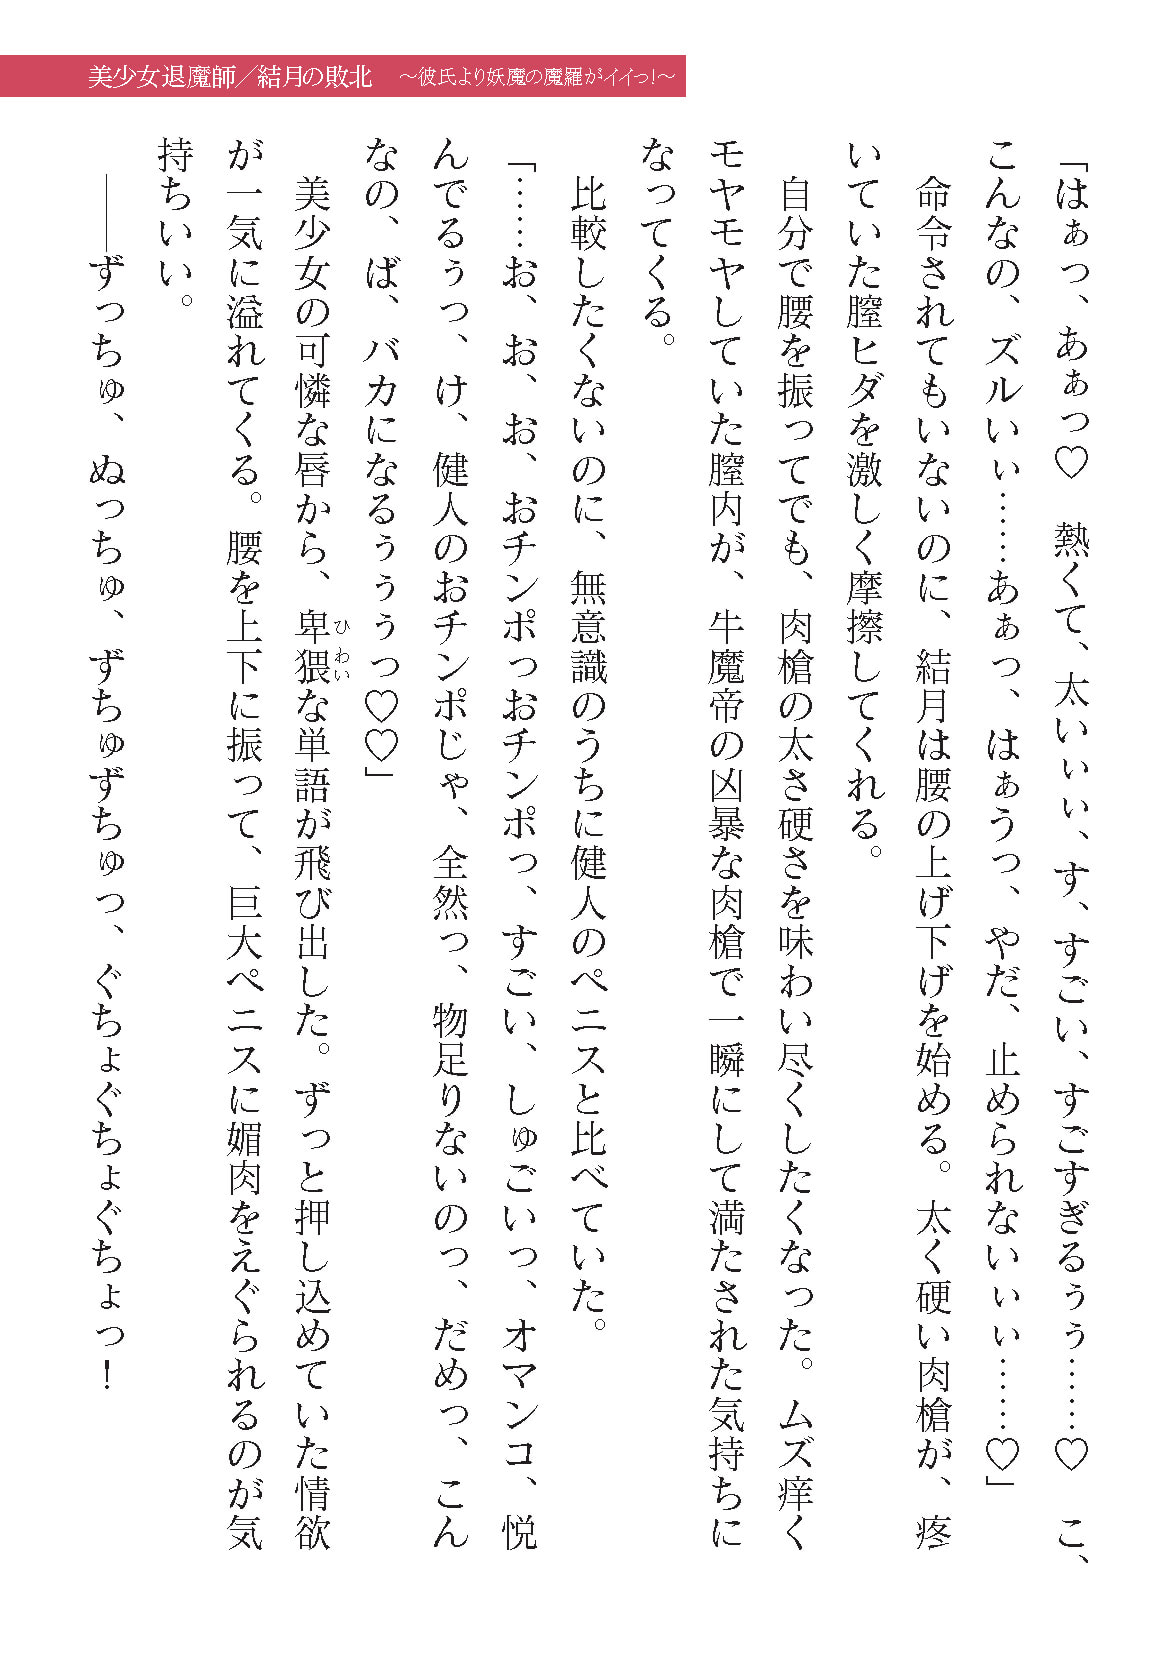 美少女退魔師／結月の敗北　～彼氏より妖魔の魔羅がイイっ！～
「はぁっ、あぁっ♡　熱くて、太いぃぃ、す、すごい、すごすぎるぅぅ……♡　こ、
こんなの、ズルいぃ……あぁっ、はぁうっ、やだ、止められないぃぃ……♡」
命令されてもいないのに、結月は腰の上げ下げを始める。太く硬い肉槍が、疼
いていた膣ヒダを激しく摩擦してくれる。
自分で腰を振ってでも、肉槍の太さ硬さを味わい尽くしたくなった。ムズ痒く
モヤモヤしていた膣内が、牛魔帝の凶暴な肉槍で一瞬にして満たされた気持ちに
なってくる。
比較したくないのに、無意識のうちに健人のペニスと比べていた。
「……お、お、お、おチンポっおチンポっ、すごい、しゅごいっ、オマンコ、悦
んでるぅっ、け、健人のおチンポじゃ、全然っ、物足りないのっ、だめっ、こん
なの、ば、バカになるぅぅぅっ♡♡」
美少女の可憐な唇から、卑猥な単語が飛び出した。ずっと押し込めていた情欲
ひわい
が一気に溢れてくる。腰を上下に振って、巨大ペニスに媚肉をえぐられるのが気
持ちいい。
――ずっちゅ、ぬっちゅ、ずちゅずちゅっ、ぐちょぐちょぐちょっ！